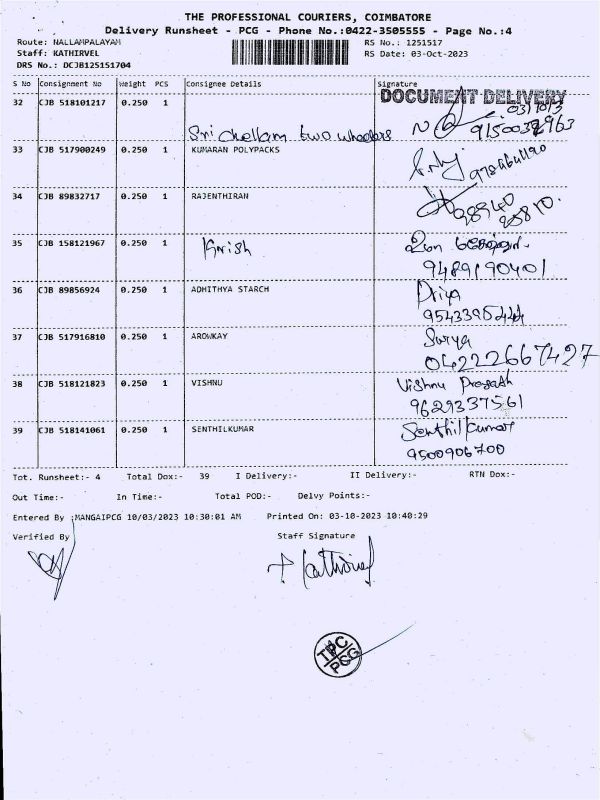 THE PROFESSIONAL COURIERS, COIMBATORE
Delivery Runsheet - PCG - Phone No.:0422-3505555 - Page No.:4
Route: NALLAMPALAYAM RS No.: 1251517
Staff: KATHIRVEL RS Date: 03-Oct-2023
DRS No.: DCJB125151704
S No Consignment No Weight PCS Consignee Details Signature
DOCUMENT DELIVERY
32 CJB 518101217 0.250 1
Sri chellam two wheelers
33 CJB 517900249 0.250 1 KUMARAN POLYPACKS
34 CJB 89832717 0.250 1 RAJENTHIRAN
35 CJB 158121967 0.250 1 Girish
9489190401
36 CJB 89856924 0.250 1 ADHITHYA STARCH Priya
37 CJB 517916810 0.250 1 AROWKAY Surya
04222667427
38 CJB 518121823 0.250 1 VISHNU Vishnu Prasath
9629337561
39 CJB 518141061 0.250 1 SENTHILKUMAR Senthil kumar
9500906700
Tot. Runsheet:- 4 Total Dox:- 39 I Delivery:- II Delivery:- RTN Dox:-
Out Time:- In Time:- Total POD:- Delvy Points:-
Entered By :MANGAIPCG 10/03/2023 10:30:01 AM Printed On: 03-10-2023 10:40:29
Verified By Staff Signature
Kathirvel
TPC
PCG